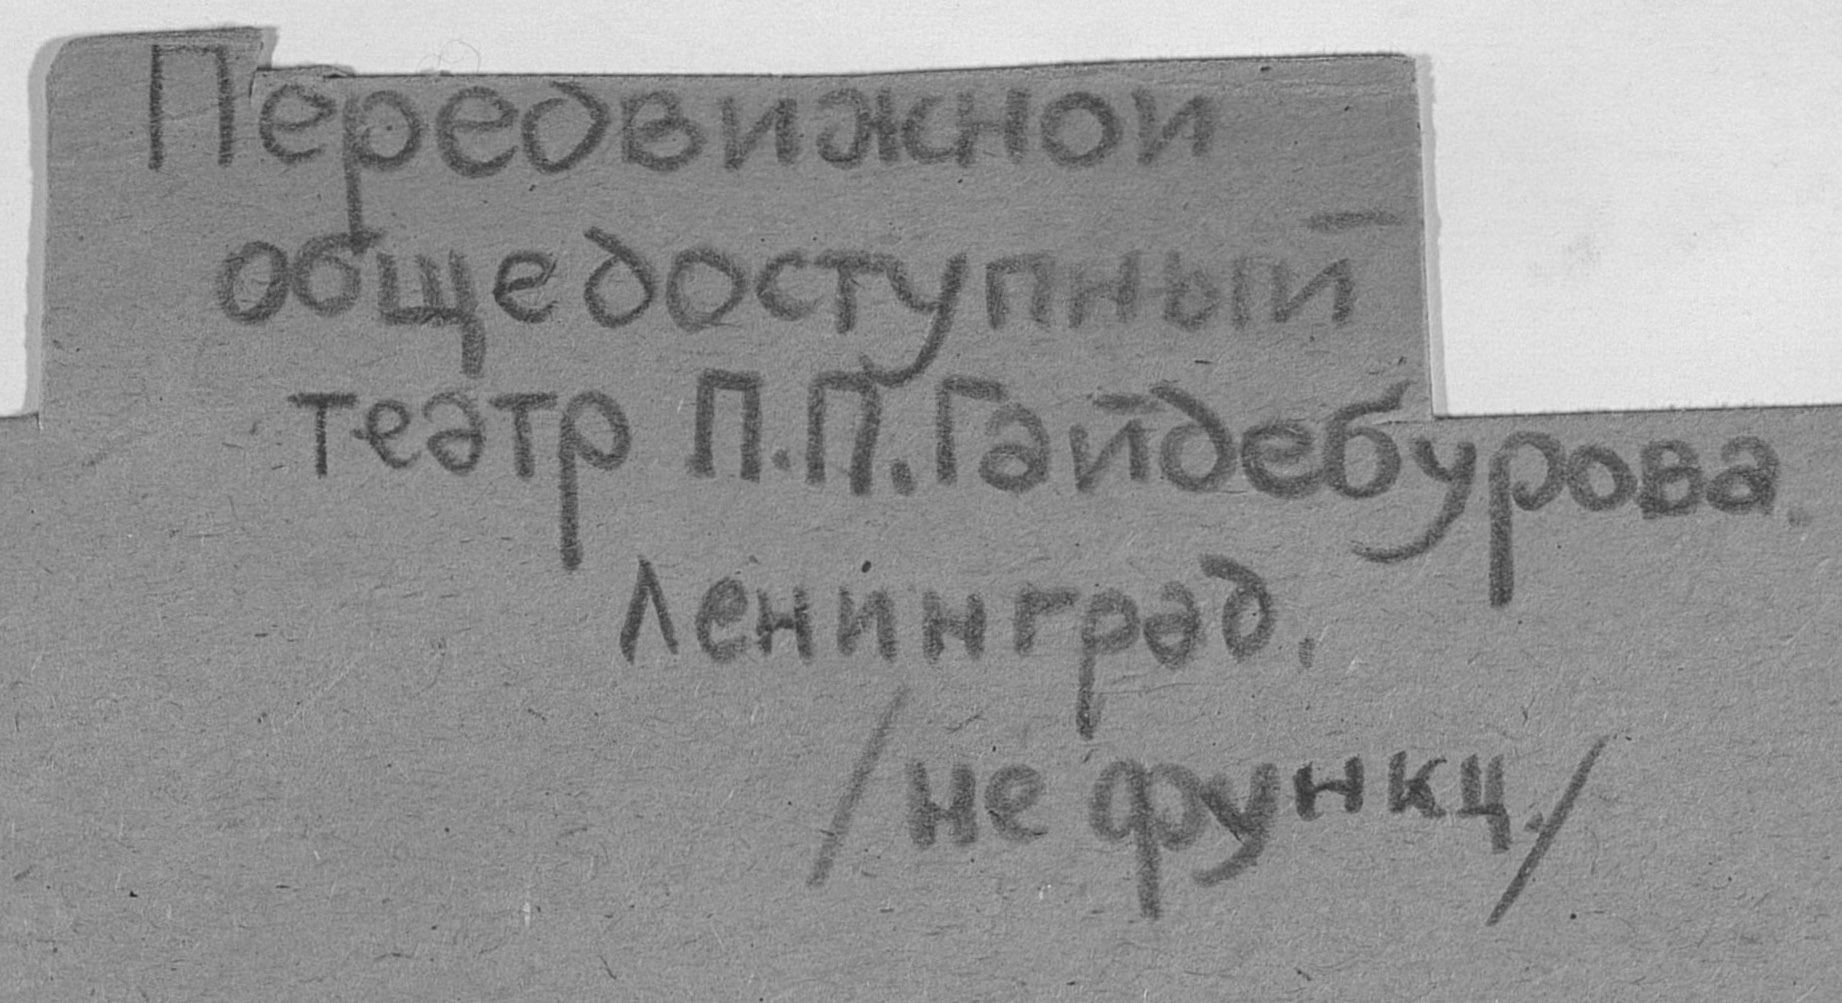 Передвижной
общедоступный
театр П.П.Гайдебурова.
Ленинград.
/не функц./